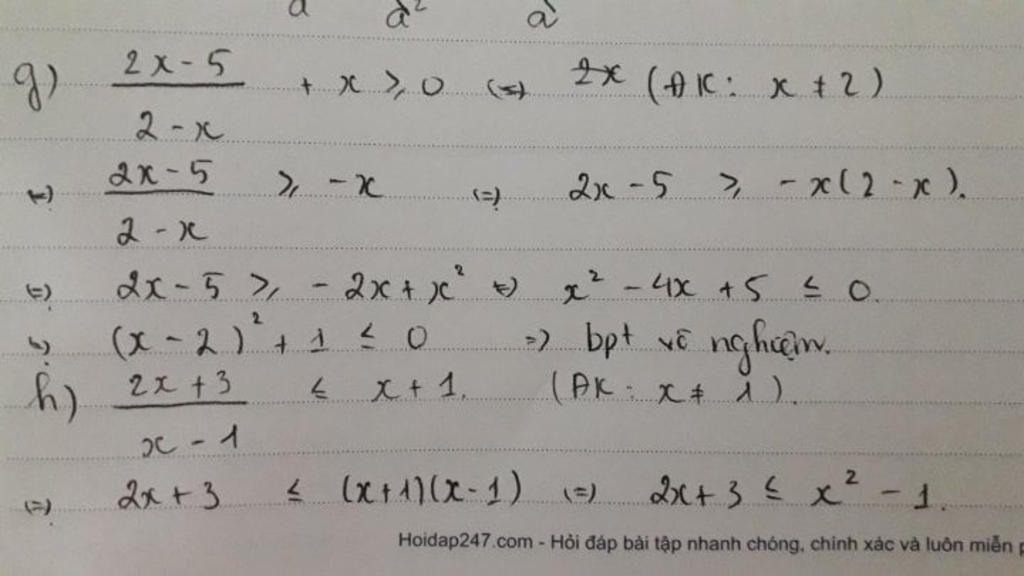 a a² a
g) (2x - 5)/(2 - x) + x ≥ 0 (=) 2x (ĐK: x ≠ 2)
(=) (2x - 5)/(2 - x) ≥ -x (=) 2x - 5 ≥ -x(2 - x).
(=) 2x - 5 ≥ -2x + x² (=) x² - 4x + 5 ≤ 0.
(=) (x - 2)² + 1 ≤ 0 => bpt vô nghiệm.
h) (2x + 3)/(x - 1) ≤ x + 1. (ĐK: x ≠ 1).
(=) 2x + 3 ≤ (x+1)(x-1) (=) 2x + 3 ≤ x² - 1.
Hoidap247.com - Hỏi đáp bài tập nhanh chóng, chính xác và luôn miễn p